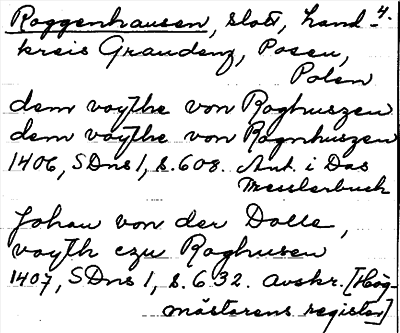 Roggenhausen, slott, Land- 4.
kreis Graudenz, Posen,
Polen
dem voythe von Roghuszen
dem voythe von Rognhuszen
1406, SDns 1, s. 608. Ant. i Das
Tresslerbuch
Johan von der Dolle,
voyth czu Roghusen
1407, SDns 1, s. 632. avskr. [Hög-
mästarens register]